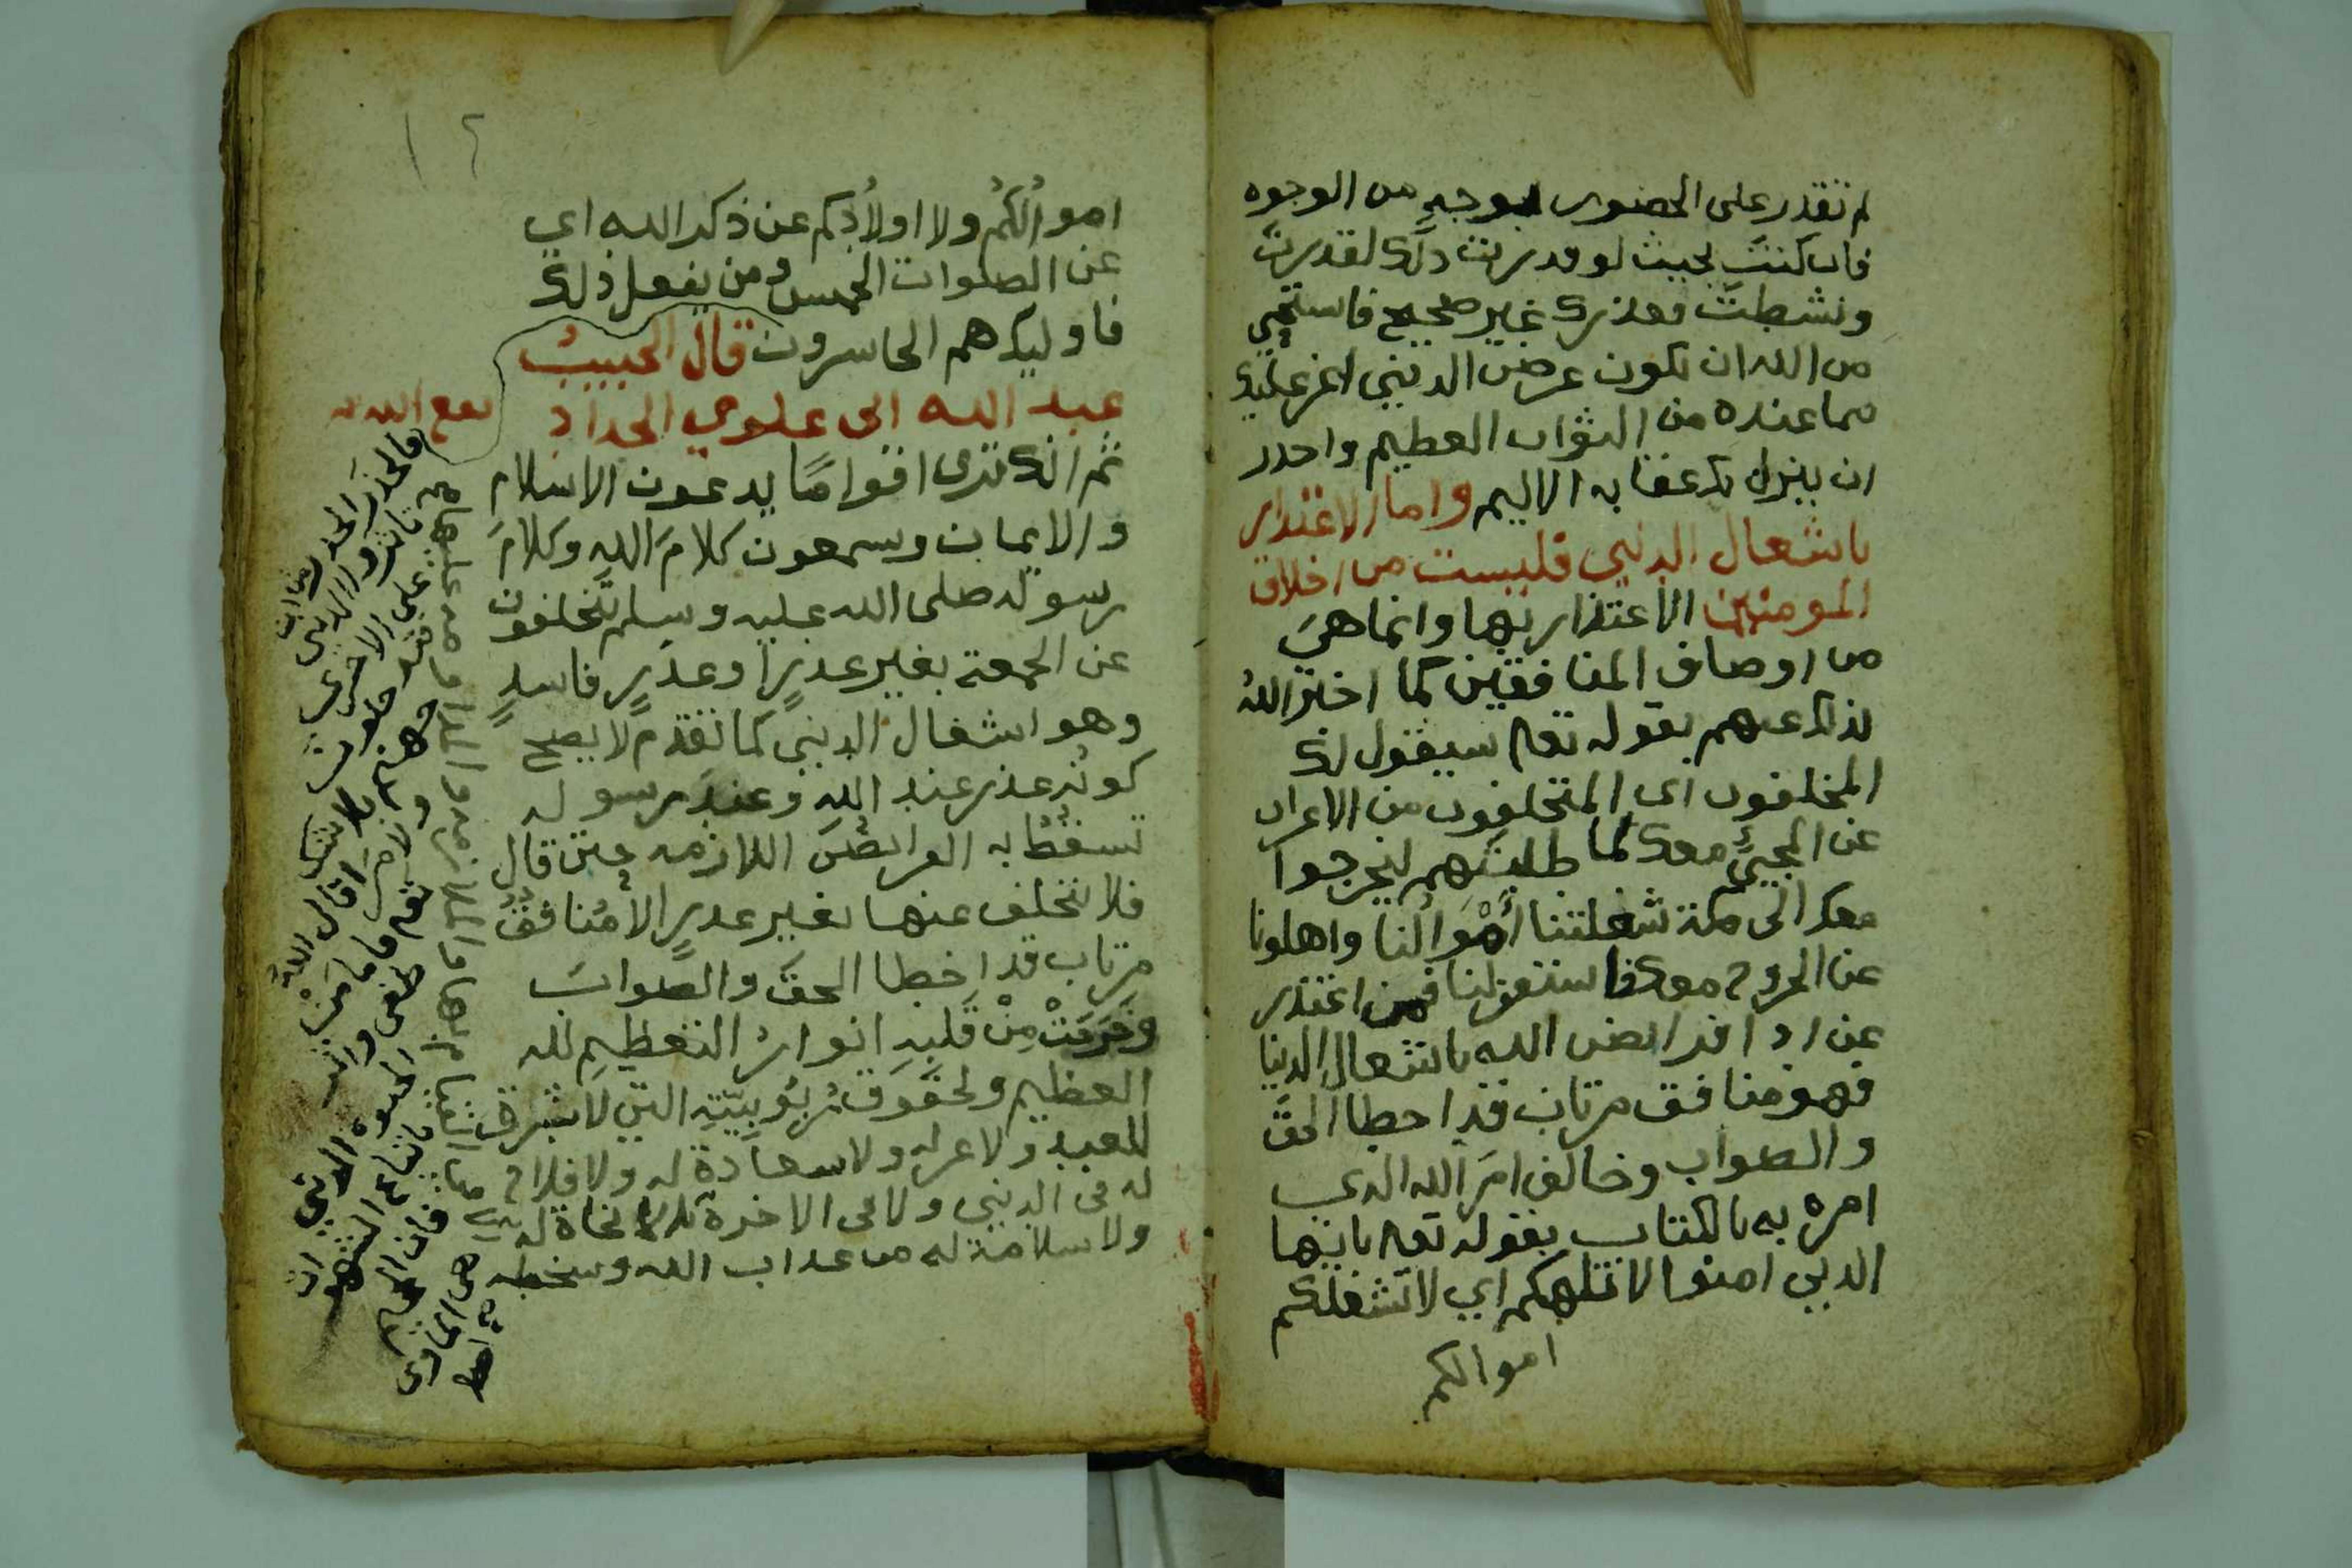 لم تقدر على الحضور بوجهٍ من الوجوه
فان كنتَ بحيث لو قدرت ذلك لقدرتَ
ونشطتَ فعذرك غير صحيح فاستحيي
من الله ان تكون عرض الدنيى اعز عليك
مما عنده من الثواب العظيم واحدر
ان ينزل بك عقابه الاليم واما الاعتذار
باشعال الدنيى فليست من اخلاق
المومنين الاعتذار بها وانما هيَ
من اوصاف المنافقين كما اخبر اللهُ
بذلك عنهم بقوله تعا سيقول لك
المخلفون اى المتخلفون من الاعراب
عن المجيئ معك لما طلبتهم ليخرجوا
معك الى مكة شغلتنا أمْوَالُنا واهلونا
عن الخروج معك فاستغفر لنا فمن اعتذر
عن ادا فرايض الله باشعال الدنيا
فهو منافق مرتاب قد اخطا الحقَّ
والصواب وخالف امرَ الله الدى
امره به بالكتاب بقوله تعا ياايها
الدين امنوا لا تلهكم اي لا تشغلكم
اموالكم
١٢
اموالُكُم ولا اولادُكم عن ذكر الله اي
عن الصلوات الخمس ومن يفعل ذلك
فاوليك هم الخاسرون قال الحبيبُ
عبد الله ابن علوي الحداد نفع الله به
ثم انك ترى اقوامًا يدعون الاسلام
والايمان ويسمعون كلامَ الله وكلامَ
رسوله صلى الله عليه وسلم يتخلفون
عن الجمعة بغير عدرٍ او عدرٍ فاسدٍ
وهو اشغال الدنيى كما تقدم لا يصح
كونُه عذر عند اللهِ وعند رسوله
تسقطُ به الفرايضُ اللازمه حيث قال
فلا تتخلف عنها بغير عدرٍ الا مُنافقٌ
مرتاب قد اخطا الحقَّ والصوابَ
وخرجتْ مِنْ قَلبِهِ انوارُ التعظيمِ لله
العظيم ولحقوق رُبُوبِيّتِهِ التي لا شرف
للعبد ولا عز له ولا سعادة له ولا فلاح
له فى الدنيى ولا فى الاخرة ولا نجاة له
ولا سلامة له من عداب الله وسخطه
فالحذر الحذر من ان
تاثرو الدنيى
على الاخرى
فتدخلون
جهنم بلا شك
ولا مرَا قال الله
تعا فاما مَنْ
طغى واثر
الحيوه الدنيى
باتباع الشهو
فان الجحيم
هي الماوى